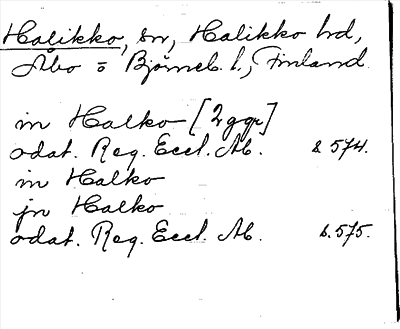 Halikko, sn, Halikko hd,
Åbo o Björneb. l., Finland.
in Halko [2 ggr]
odat. Reg. Eccl. Ab. s 574.
in Halko
jn Halko
odat. Reg. Eccl. Ab. s. 575.